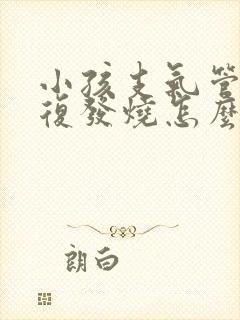 小孩支氣管
復發燒怎麼
朗白